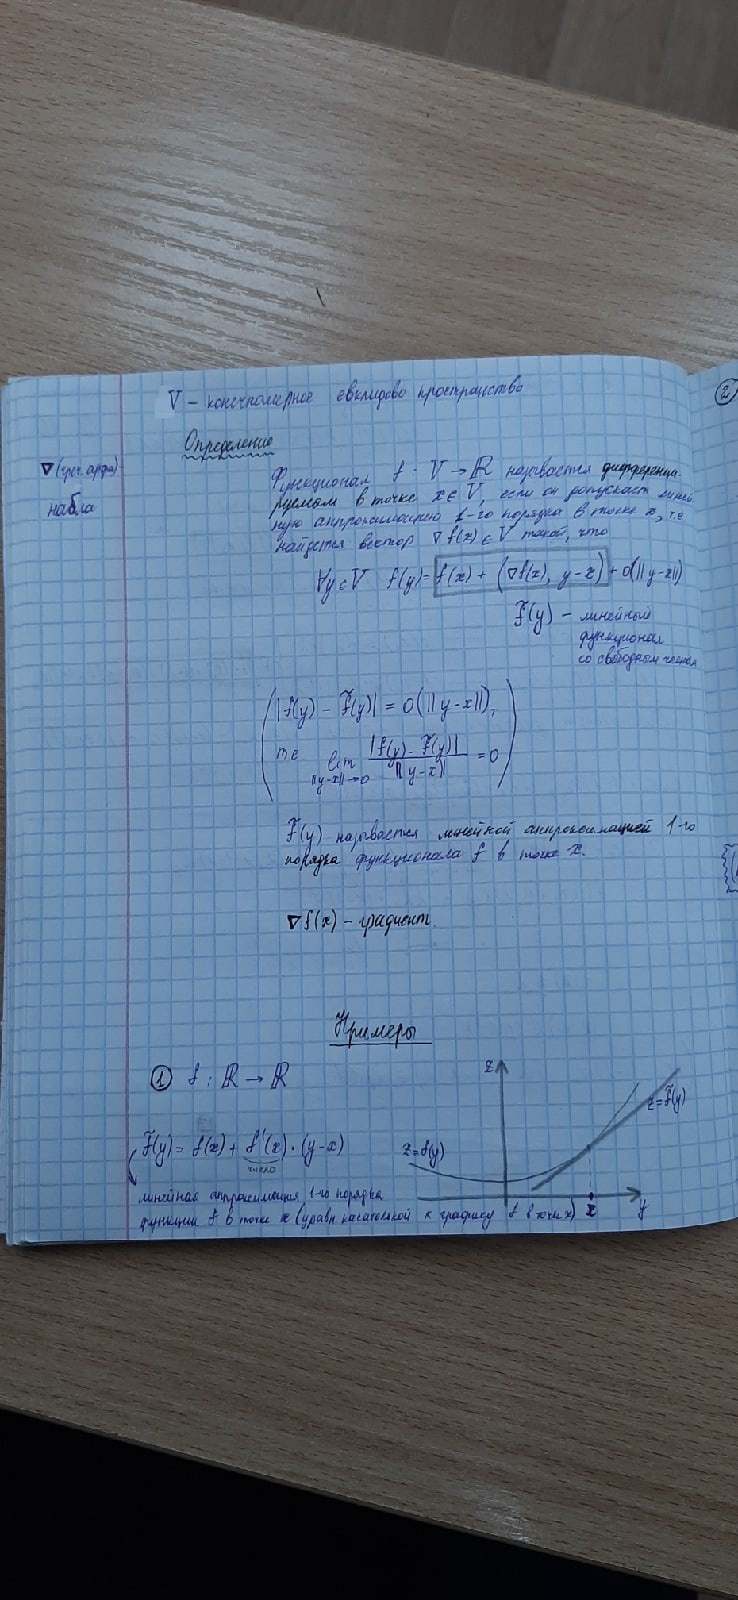 V - конечномерное евклидово пространство
②
Определение
∇ (греч. арфа)
набла
Функционал f : V → ℝ называется дифференци-
руемым в точке x ∈ V, если он допускает линей-
ную аппроксимацию 1-го порядка в точке x, т.е
найдется вектор ∇f(x) ∈ V такой, что
∀y ∈ V f(y) = f(x) + (∇f(x), y-x) + o(||y-x||)
f̃(y) - линейный
функционал
со свободным членом
( |f(y) - f̃(y)| = o(||y-x||),
т.е lim_{||y-x||→0} |f(y) - f̃(y)| / ||y-x|| = 0 )
f̃(y) называется линейной аппроксимацией 1-го
порядка функционала f в точке x.
∇f(x) - градиент.
Примеры
① f : ℝ → ℝ
f̃(y) = f(x) + f'(x) · (y-x)
число
линейная аппроксимация 1-го порядка
функции f в точке x (уравн касательной к графику f в точке x)
z
z = f(y)
z = f̃(y)
x
y